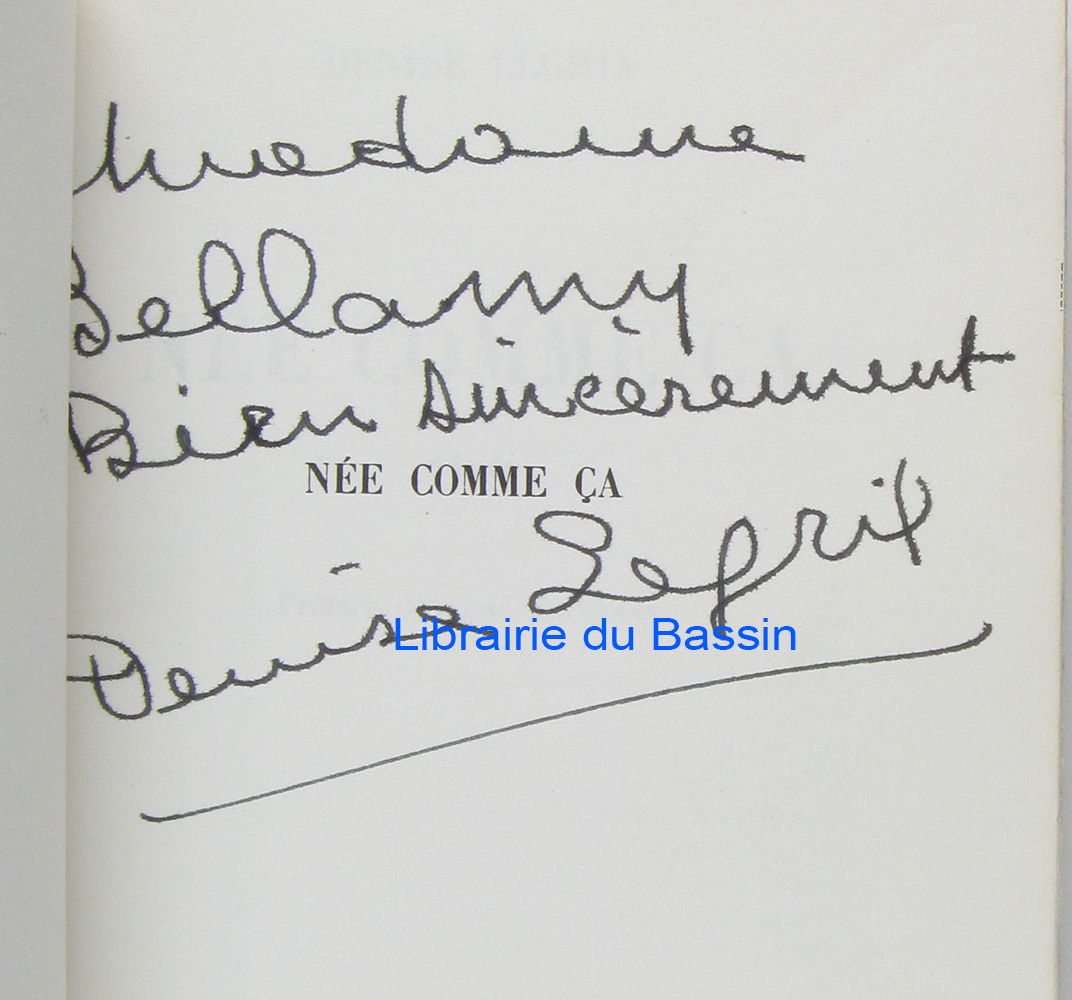 Madame
Bellamy
Bien sincèrement
NÉE COMME ÇA
Denise Legrix
Librairie du Bassin